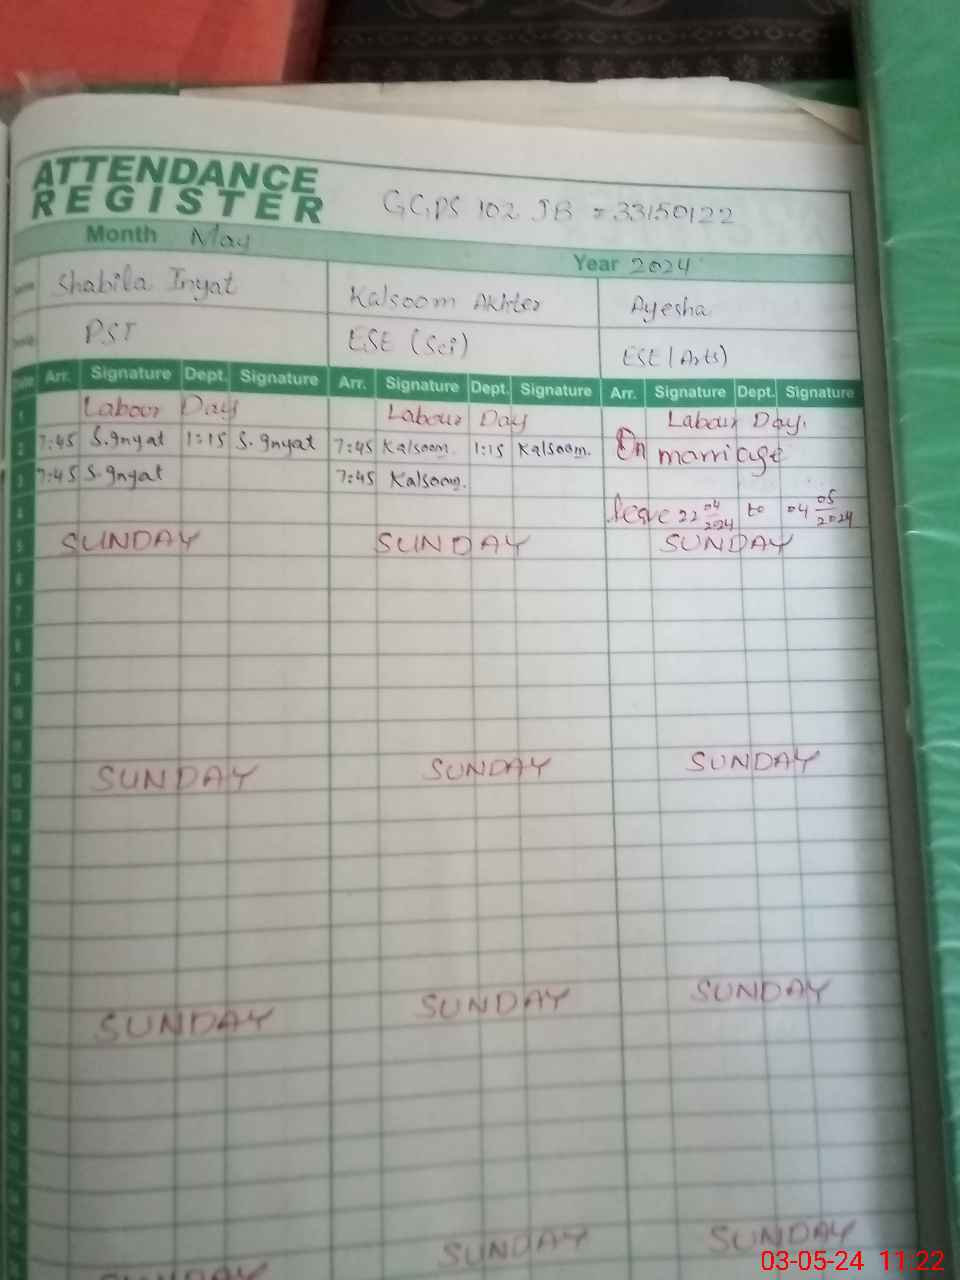 ATTENDANCE
REGISTER
GGPS 102 JB = 33150122
Month May
Year 2024
Shabila Inyat Kalsoom Akhter Ayesha
PST ESE (Sci) ESE (Arts)
Arr. Signature Dept. Signature Arr. Signature Dept. Signature Arr. Signature Dept. Signature
1 Labour Day Labour Day Labour Day.
2 7:45 S.Inyat 1:15 S.Inyat 7:45 Kalsoom. 1:15 Kalsoom. On marriage
3 7:45 S.Inyat 7:45 Kalsoom.
4 leave 22 04/2024 to 04 05/2024
5 SUNDAY SUNDAY SUNDAY
6
7
8
9
10
11
12 SUNDAY SUNDAY SUNDAY
13
14
15
16
17
18
19 SUNDAY SUNDAY SUNDAY
SUNDAY SUNDAY SUNDAY
03-05-24 11:22